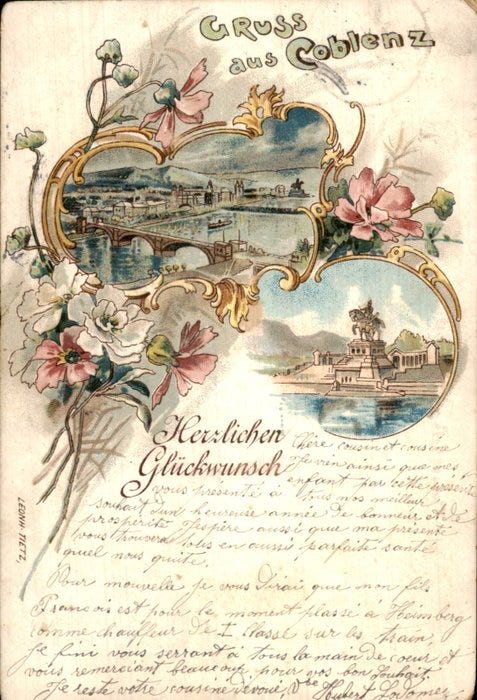 Gruss
aus Coblenz
Herzlichen
Glückwunsch
LEONH. TIETZ.
Chère cousin et cousine
Je vien ainsi que mes
enfant par cette présent
vous présenté à tous nos meilleur
souhait d'un heureuse année de bonneur et de
prospérité j'espère aussi que ma présente
vous trouvera tous en aussi parfaite santé
quel nous quite.
Pour nouvelle je vous dirai que mon fils
François est pour le moment plassé a Heimberg
comme chauffeur de I classe sur les train,
je fini vous serrant à tous la main de cœur et
vous remerciant beaucoup pour vos bon souhait.
Je reste votre cousine dévoué, Vbe Hubert